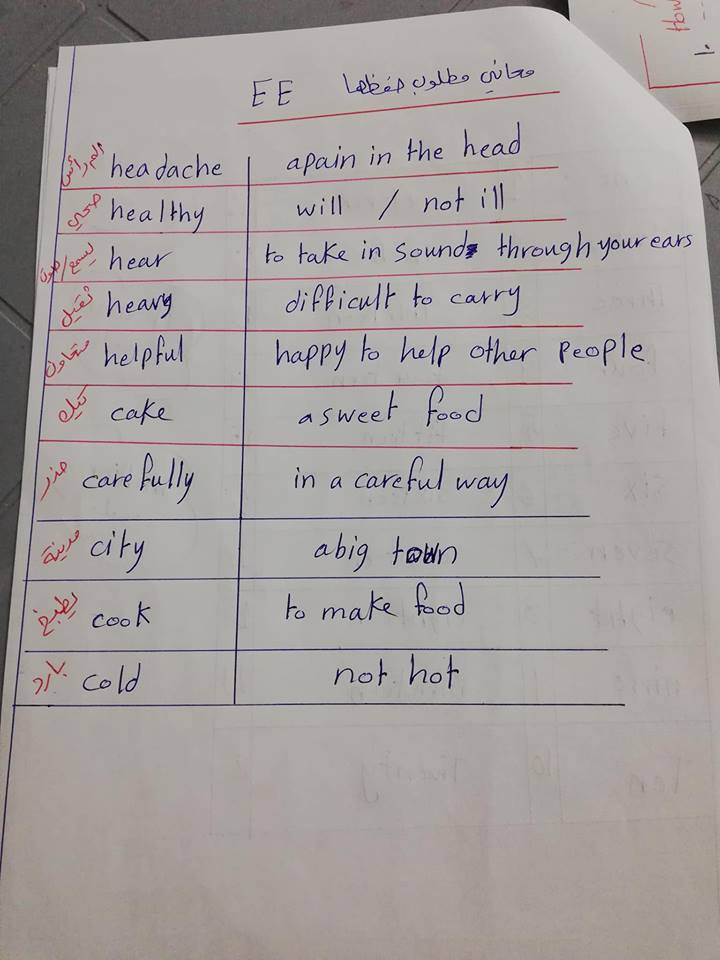 EE معاني مطلوب حفظها
الم رأس headache apain in the head
صحي healthy will / not ill
يسمع/صوت hear to take in sounds through your ears
ثقيل heavy difficult to carry
متعاون helpful happy to help other people
كيك cake a sweet food
حذر carefully in a careful way
مدينة city abig town
يطبخ cook to make food
بارد cold not hot
How